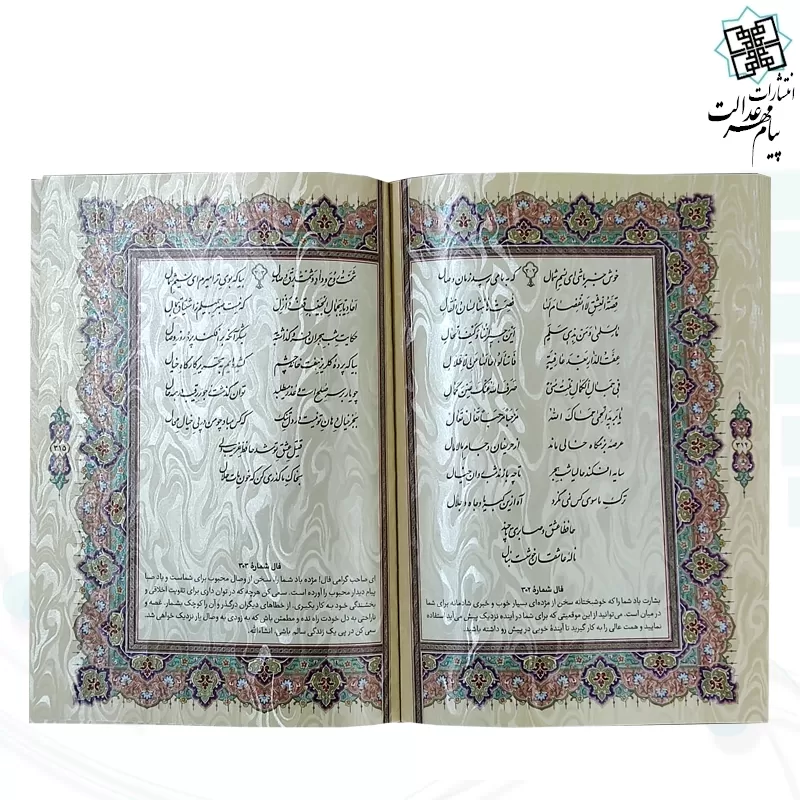 انتشارات
پیام مهر عدالت
خوش خبر باشی ای نسیم شمال که به ما می‌رسد زمان وصال
قصة العشق لا انفصام لها فصمت ها هنا لسان القال
ما لسلمی و من بذی سلم این جیراننا و کیف الحال
عفت الدار بعد عافیة فاسألوا حالها عن الاطلال
فی جمال الکمال نلت منی صرف الله عنک عین کمال
یا برید الحمی حماک الله مرحبا مرحبا تعال تعال
عرصه بزمگاه خالی ماند از حریفان و جام مالامال
سایه افکند حالیا شب هجر تا چه بازند شب روان خیال
ترک ما سوی کس نمی نگرد آه از این کبریا و جاه و جلال
حافظا عشق و صابری تا چند
ناله عاشقان خوش است بنال
فال شمارهٔ ۳۰۲
بشارت باد شما را که خوشبختانه سخن از مژده‌ای بسیار خوب و خبری شادمانه برای شما
در میان است. می‌توانید از این موقعیتی که برای شما در آینده نزدیک پیش می‌آید استفاده
نمایید و همت عالی را به کار گیرید تا آیندهٔ خوبی در پیش رو داشته باشید.
شممت روح وداد و شمت برق وصال بیا که بوی ترا میرم ای نسیم شمال
احادیا بجمال الحبیب قف و انزل که نیست صبر جمیلم ز اشتیاق جمال
حکایت شب هجران فرو گذاشته به بشکر آنکه برافکند پرده روز وصال
بیا که پرده گلریز هفت خانه چشم کشیده‌ایم به تحریر کارگاه خیال
چو یار بر سر صلح است و عذر می‌طلبد توان گذشت ز جور رقیب در همه حال
بجز خیال دهان تو نیست در دل تنگ که کس مباد چو من در پی خیال محال
قتیل عشق تو شد حافظ غریب ولی
بخاک ما گذری کن که خون مات حلال
فال شمارهٔ ۳۰۳
ای صاحب گرامی فال! مژده باد شما را، سخن از وصال محبوب برای شماست و باد صبا
پیام دیدار محبوب را آورده است. سعی کن هرچه که در توان داری برای تقویت اخلاقی و
بخشندگی خود به کار بگیری. از خطاهای دیگران درگذر و آن را کوچک بشمار. غصه و
ناراحتی به دل خودت راه نده و مطمئن باش که به زودی به وصال یار نزدیک خواهی شد.
سعی کن در پی یک زندگی سالم باشی. انشاءالله.
۳۱۵